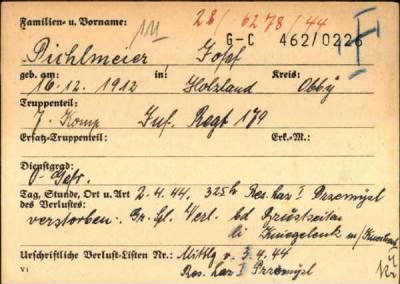 Familien- u. Vorname:
28/6278/44
G-C 462/0226
Pichlmeier Josef
geb. am: in: Kreis:
16.12.1912 Holzland Obby
Truppenteil:
7. Komp Inf. Regt 179
Ersatz-Truppenteil: Erk.-M.:
Dienstgrad:
O. Gefr.
Tag, Stunde, Ort u. Art 2.4.44. 325h Res. Laz I Przemysl
des Verlustes:
verstorben. Gr. Spl. Verl. bd
li Kniegelenk m/
Urschriftliche Verlust-Listen Nr.: Mittlg v. 3.4.44
Res. Laz I Przemysl
VI